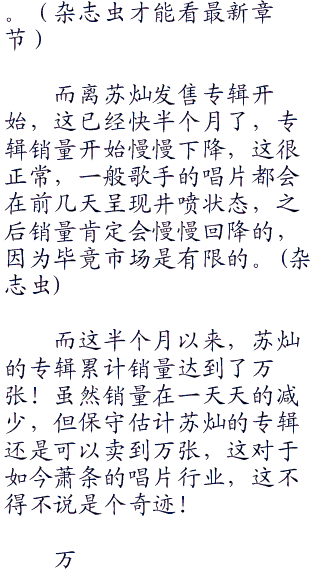 。（杂志虫才能看最新章
节）
而离苏灿发售专辑开
始，这已经快半个月了，专
辑销量开始慢慢下降，这很
正常，一般歌手的唱片都会
在前几天呈现井喷状态，之
后销量肯定会慢慢回降的，
因为毕竟市场是有限的。(杂
志虫)
而这半个月以来，苏灿
的专辑累计销量达到了万
张！虽然销量在一天天的减
少，但保守估计苏灿的专辑
还是可以卖到万张，这对于
如今萧条的唱片行业，这不
得不说是个奇迹！
万